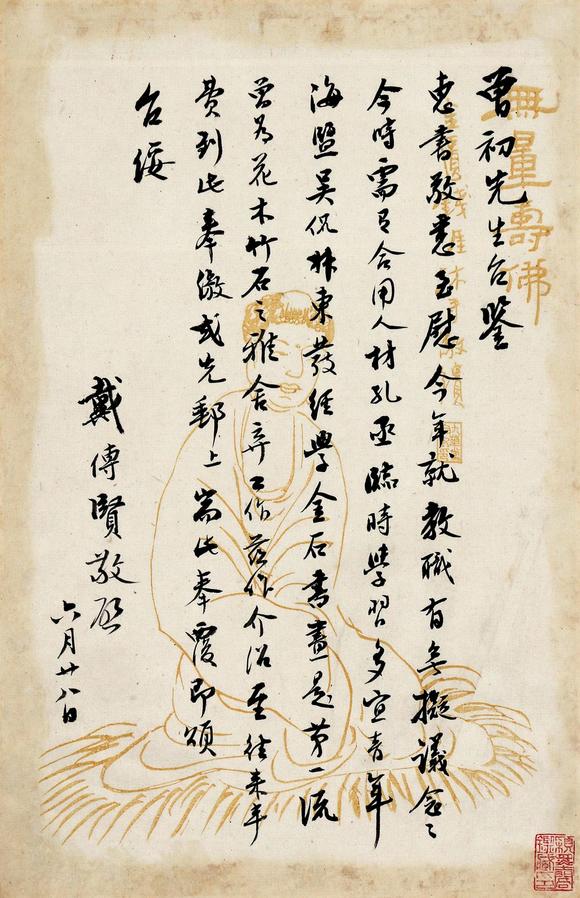 曾初先生台鑒
惠書敬悉至慰今年就教職有無擬議念念
今時需多合用人材孔亟臨時學習多宜青年
海鹽吳侃叔東發經學金石書畫是第一流
曾為花木竹石之雅舍弃工作茲作介紹至往來車
費到此奉繳或先郵上耑此奉覆即頌
台綏
戴傳賢敬啟
六月廿八日
無量壽佛